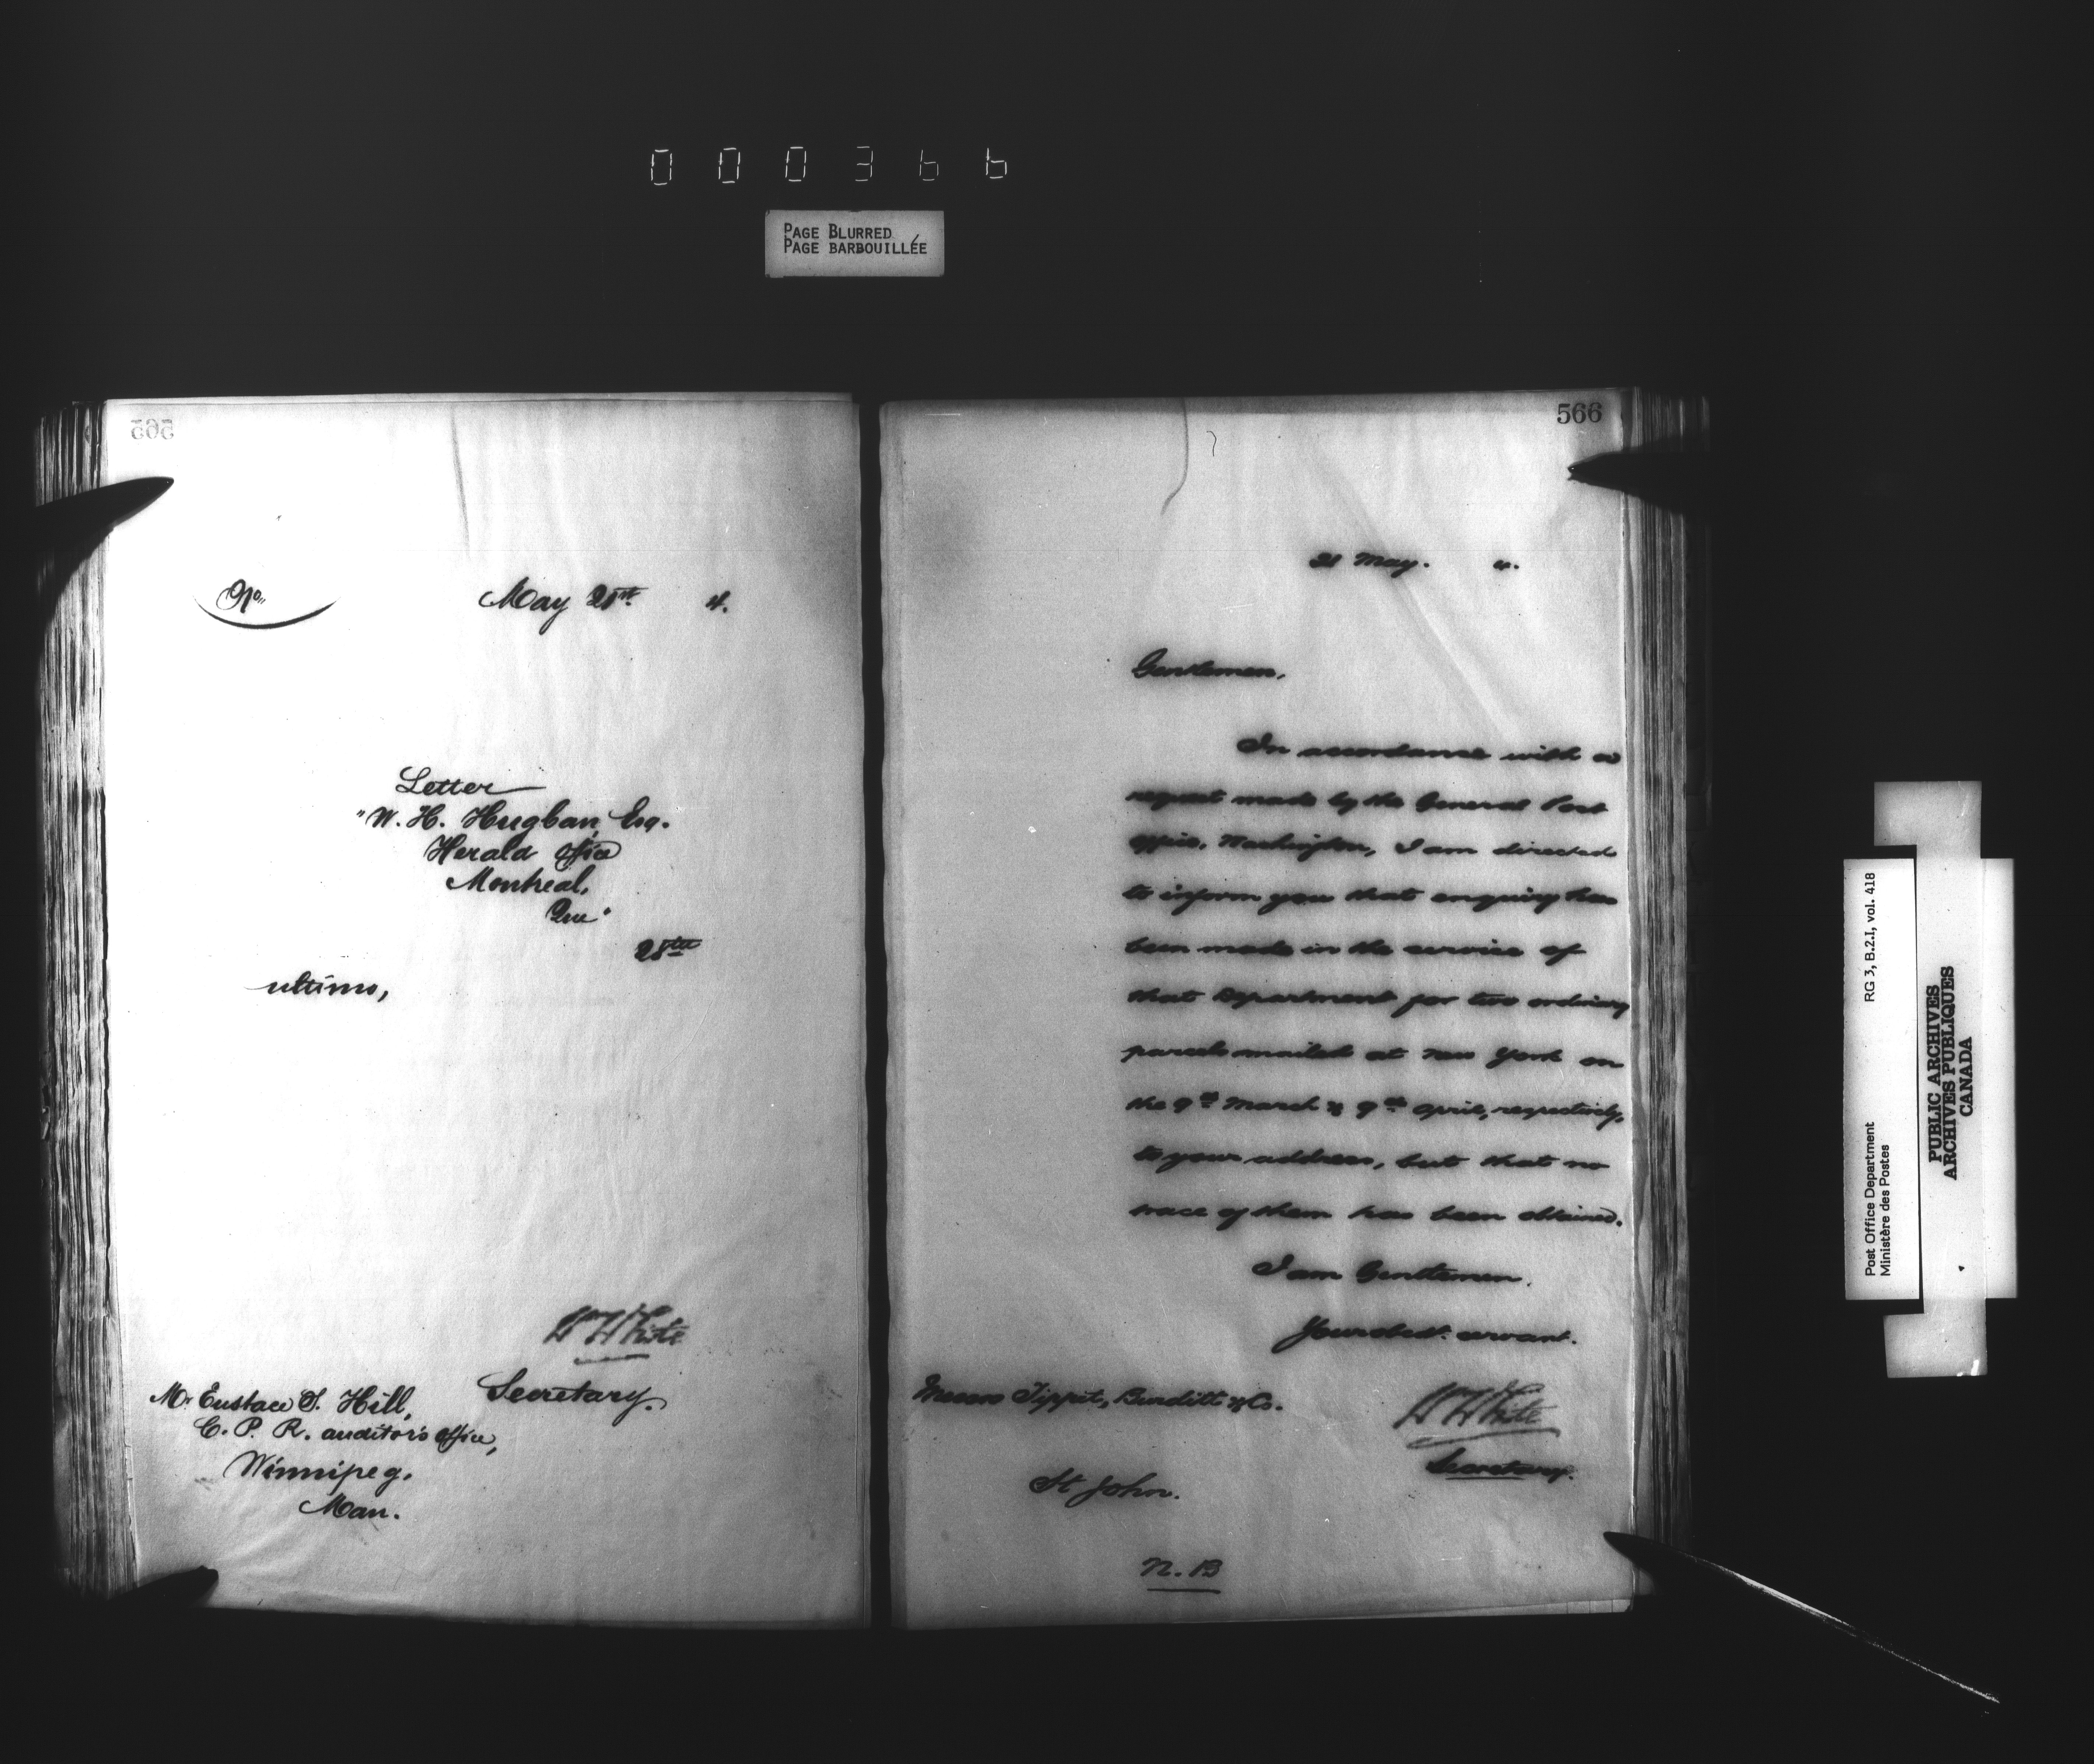 000366
PAGE BLURRED
PAGE BARBOUILLÉE
565
No.
May 21st 4.
Letter
"W. H. Hugban, Esq.
Herald Office
Montreal,
Que"
28th
ultimo,
W White
Secretary.
Mr Eustace T. Hill,
C. P. R. auditor's Office,
Winnipeg.
Man.
566
21 May. 4.
Gentlemen,
In accordance with a
request made by the General Post
Office, Washington, I am directed
to inform you that enquiry has
been made in the service of
that Department for two ordinary
parcels mailed at New York on
the 9th March & 9th April, respectively,
to your address, but that no
trace of them has been obtained.
I am Gentlemen.
Your obedt. servant.
W White
Secretary.
Messrs Tippet, Burditt & Co.
St John.
N. B
Post Office Department RG 3, B.2.I, vol. 418
Ministère des Postes
PUBLIC ARCHIVES
ARCHIVES PUBLIQUES
CANADA